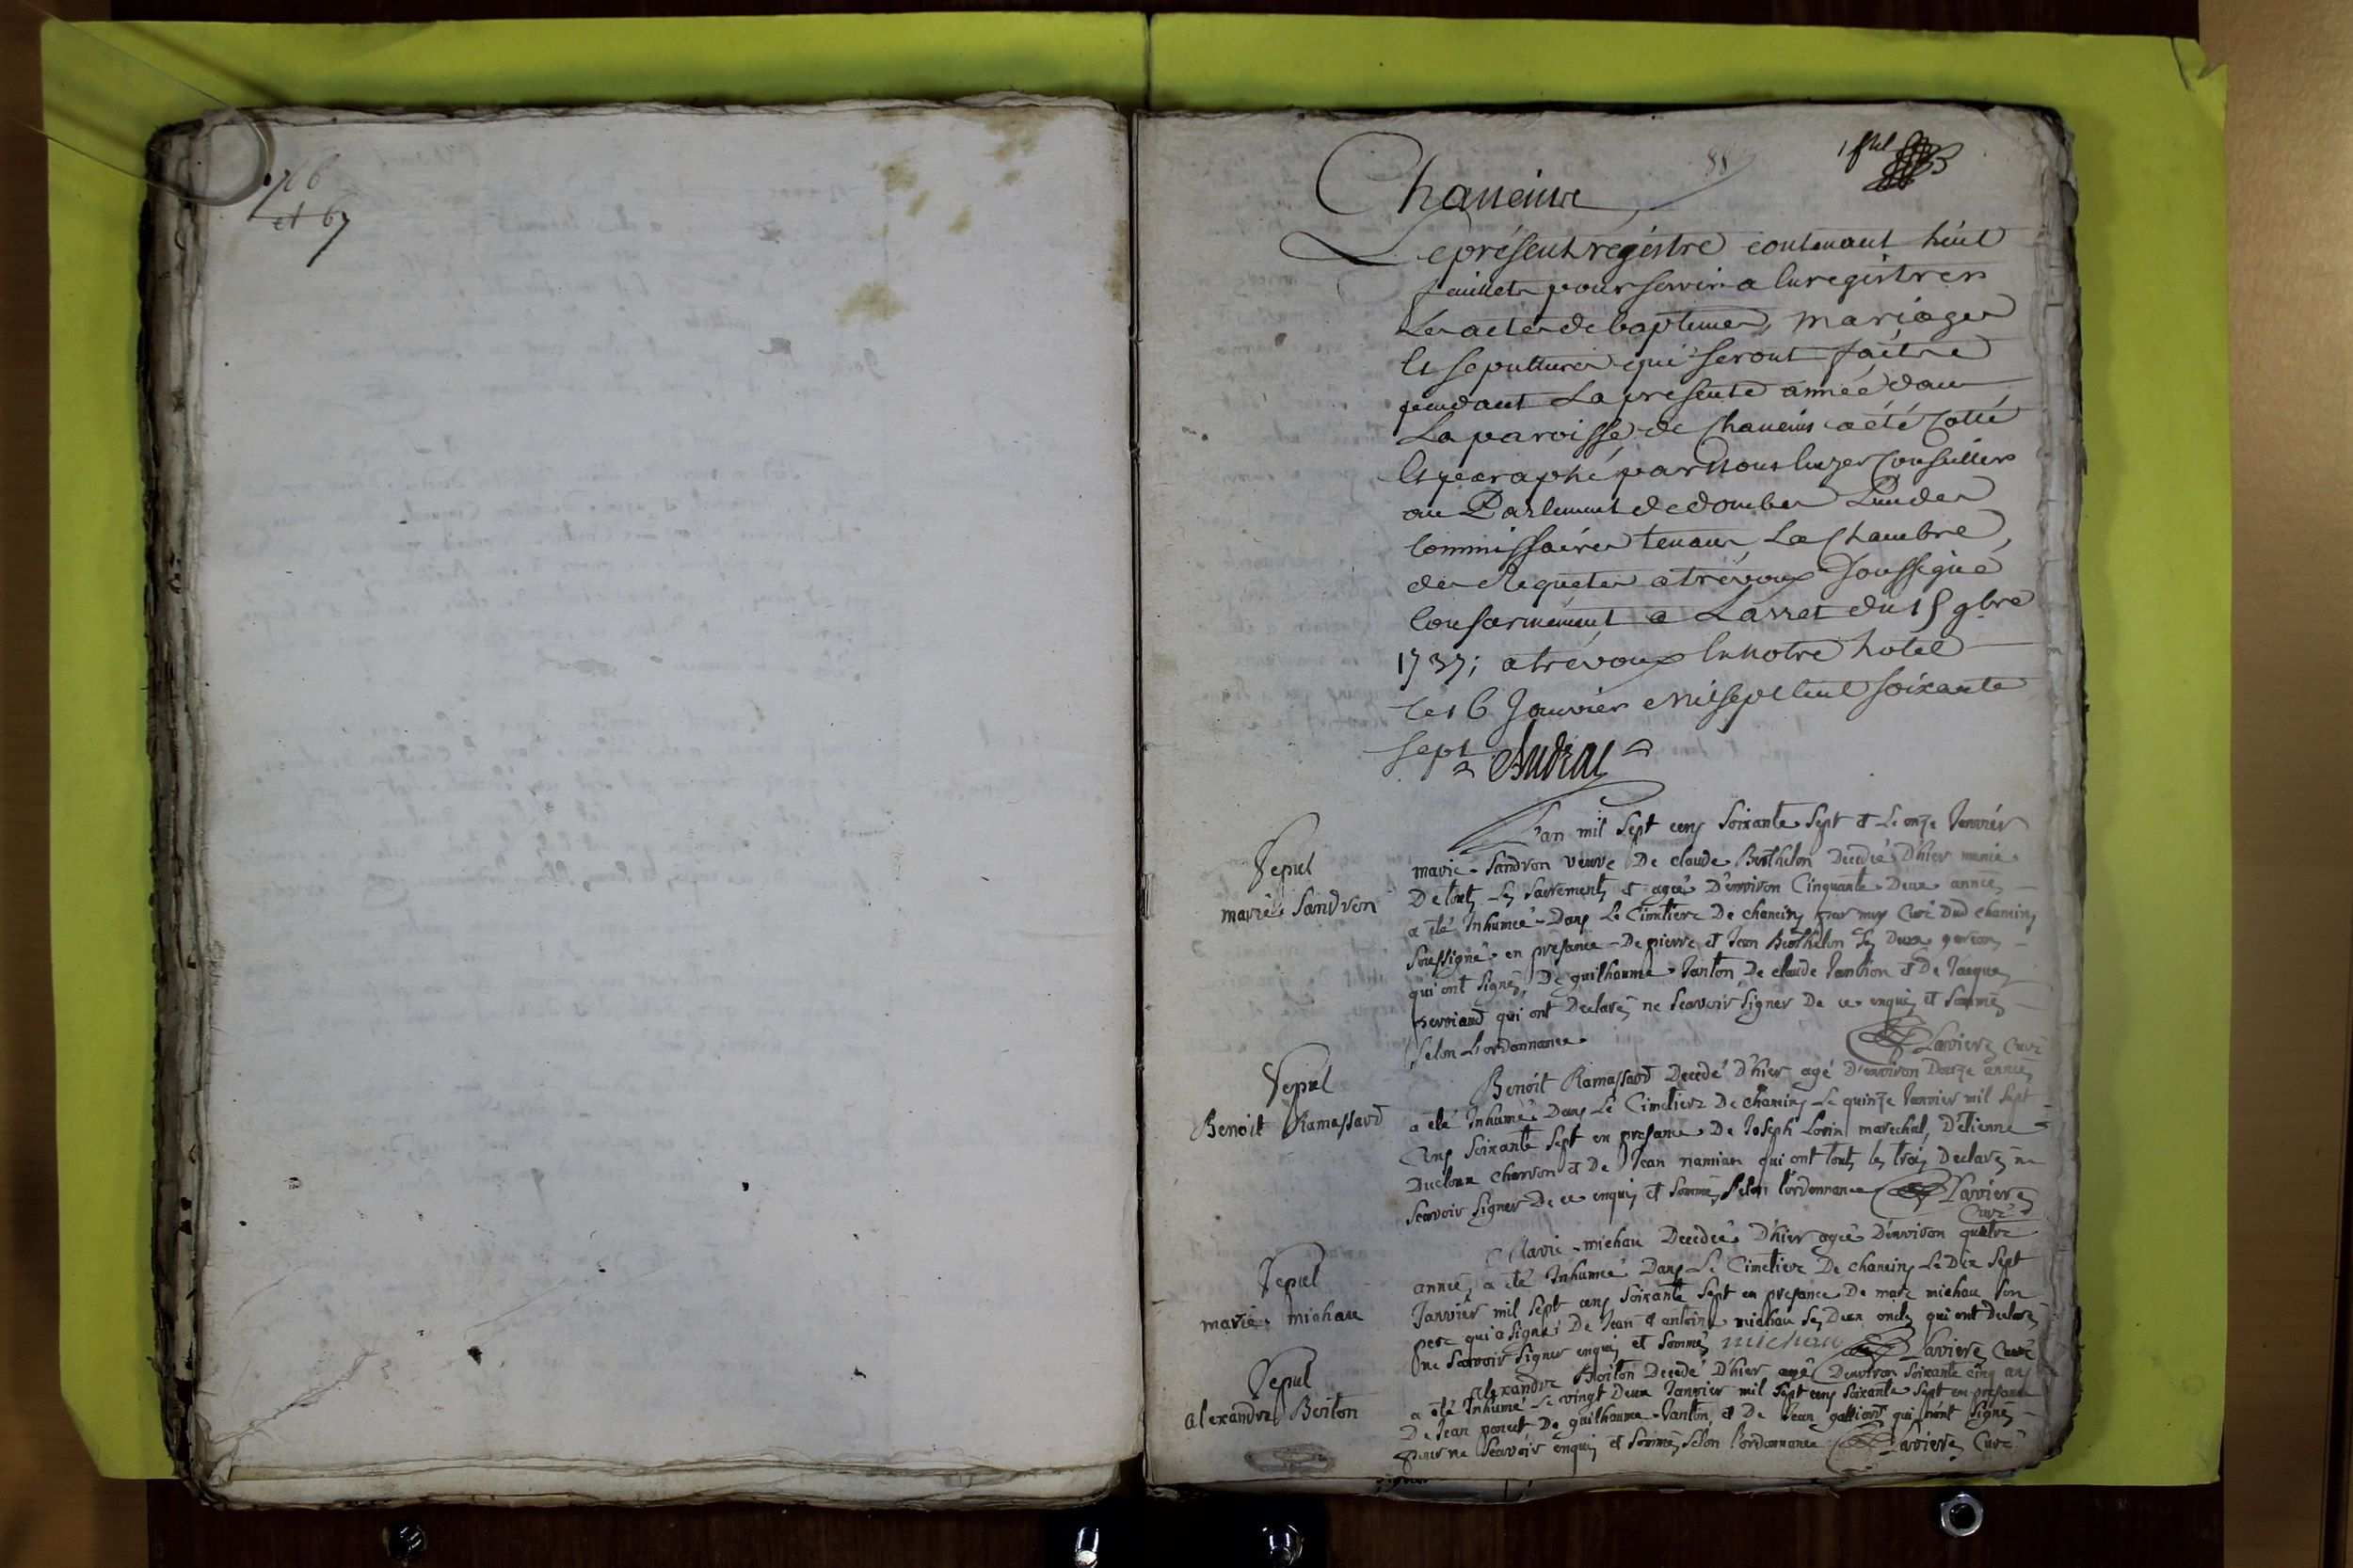 66
et 67
1 ful
Chaneins
Le présent registre contenant huit
feuillets pour servir a Enregistrer
Les actes de baptemes, mariages
Et sepultures qui seront faitte
pendant La presente année dans
La paroisse de Chaneins a été Cotté
Et paraphé par Nous Ecuyer Conseiller
au Parlement de dombes L'un des
Commissaires tenans La Chambre
des Requetes a trévoux Soussigné
Conformement a L'arret du 15 9bre
1737; a trévoux En notre hotel
le 16 Janvier mil sept Cent soixante
sept Audras
L'an mil sept cens soixante sept et Le onze Janvier
Sepul
marie Sandron
marie Sandron veuve De claude Berthelon Decedée D'hier munie
De touts Les sacrements et agée D'environ Cinquante Deux années
a été Inhumée Dans Le Cimetiere De chaneins par moy Curé Dud chaneins
soussigné en presance De pierre et Jean Berthelon ses Deux garçons
qui ont signés, De guilhaume Janton, De claude Janthon et De Jaques
perriaud qui ont Declarés ne scavoir signer De ce enquis et sommés
selon L'ordonnance Laviere Curé
Sepul
Benoit Ramassard
Benoit Ramassard Decedé D'hier agé D'environ Douze années
a été Inhumé Dans Le Cimetiere De chaneins Le quinze Janvier mil sept
cens soixante sept en presance De Joseph Lorin marechal, D'etienne
Ducloux charron et De Jean namian qui ont touts les trois Declarés ne
scavoir signer De ce enquis et sommés selon l'ordonnance Laviere
Curé
Sepul
marie michau
Marie michau Decedée D'hier agée D'environ quatre
années, a été Inhumée Dans Le Cimetiere De chaneins Le Dix sept
Janvier mil sept cens soixante sept en presance De marc michau son
pere qui a signé De Jean et antoine michau ses Deux oncles qui ont Declarés
ne scavoir signer enquis et sommés michau Laviere Curé
Sepul
alexandre Boiton
alexandre Boiton Decedé D'hier agé D'environ soixante cinq ans
a été Inhumé Le vingt Deux Janvier mil sept cens soixante sept en presance
De Jean poncet De guilhaume Janton et De Jean galliard qui n'ont signés
pour ne scavoir enquis et sommés selon l'ordonnance Laviere Curé